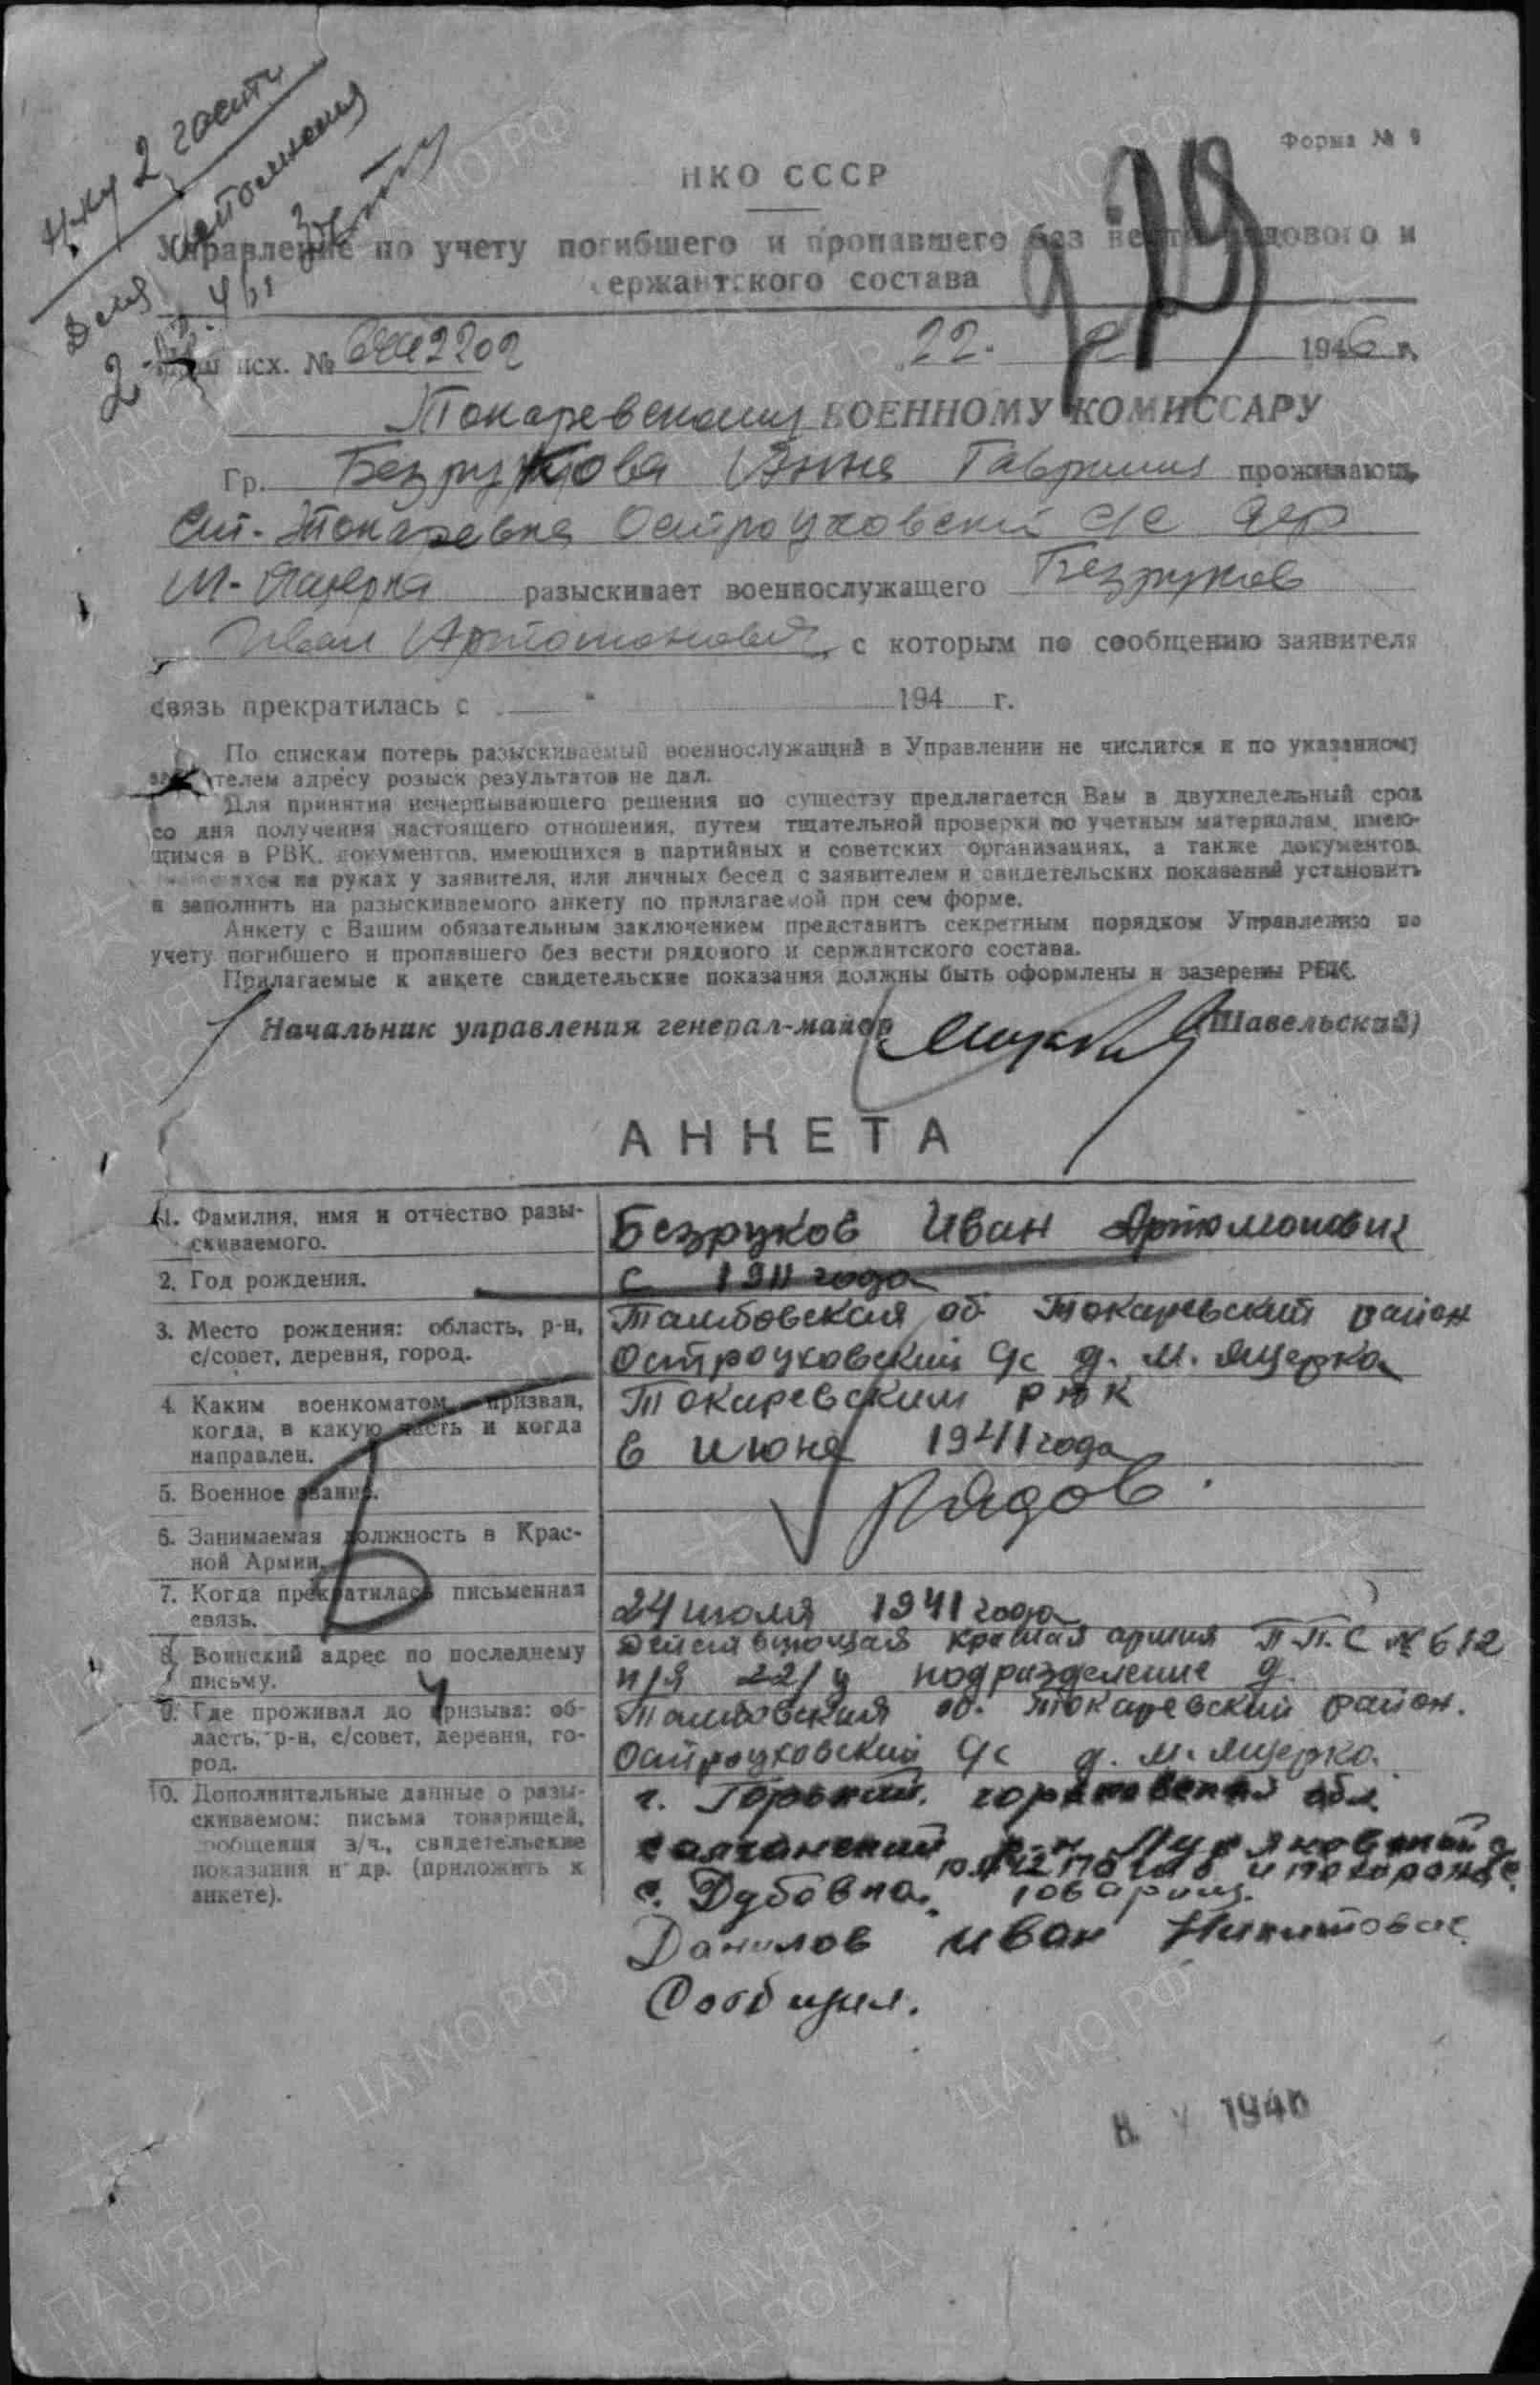 Н-ку 2 части
Для исполнения
Форма № 9
НКО СССР
Управление по учету погибшего и пропавшего без вести рядового и
сержантского состава
Наш исх. № 2202 22. 1946 г.
Токаревскому ВОЕННОМУ КОМИССАРУ
Гр. Безрукова Анна проживающ.
Ст. Токаревка Остроуховский с/с дер
М-Ящерка разыскивает военнослужащего Безруков
Иван Артомонович, с которым по сообщению заявителя
связь прекратилась с " 194 г.
По спискам потерь разыскиваемый военнослужащий в Управлении не числится и по указанному
заявителем адресу розыск результатов не дал.
Для принятия исчерпывающего решения по существу предлагается Вам в двухнедельный срок
со дня получения настоящего отношения, путем тщательной проверки по учетным материалам, имею-
щимся в РВК, документов, имеющихся в партийных и советских организациях, а также документов,
имеющихся на руках у заявителя, или личных бесед с заявителем и свидетельских показаний установить
и заполнить на разыскиваемого анкету по прилагаемой при сем форме.
Анкету с Вашим обязательным заключением представить секретным порядком Управлению по
учету погибшего и пропавшего без вести рядового и сержантского состава.
Прилагаемые к анкете свидетельские показания должны быть оформлены и заверены РВК.
Начальник управления генерал-майор (Шавельский)
АНКЕТА
1. Фамилия, имя и отчество разы-
скиваемого.
Безруков Иван Артомонович
2. Год рождения.
с 1911 года
3. Место рождения: область, р-н,
с/совет, деревня, город.
Тамбовская об Токаревский район
Остроуховский с/с д. М. Ящерка
4. Каким военкоматом призван,
когда, в какую часть и когда
направлен.
Токаревским РВК
в июня 1941 года
5. Военное звание.
рядов.
6. Занимаемая должность в Крас-
ной Армии.
7. Когда прекратилась письменная
связь.
24 июля 1941 года
8. Воинский адрес по последнему
письму.
Действующая красная армия П.П.С № 612
п/я 22/ подразделение д.
9. Где проживал до призыва: об-
ласть, р-н, с/совет, деревня, го-
род.
Тамбовская об. Токаревский район.
Остроуховский с/с д. М. Ящерка.
10. Дополнительные данные о разы-
скиваемом: письма товарищей,
сообщения з/ч., свидетельские
показания и др. (приложить к
анкете).
г. Горький. горьковской обл.
салганский р-н
с. Дубовка. товарищ.
Данилов Иван Никитович
Сообщил.
1946
ЦАМО.РФ
ПАМЯТЬ
НАРОДА